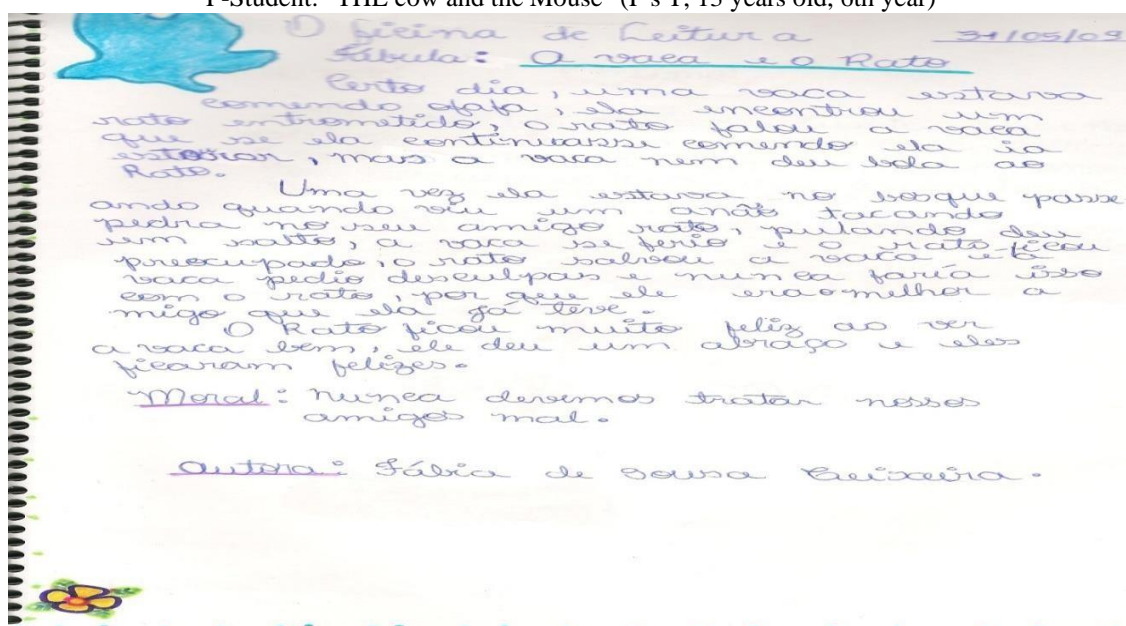 F-Student: "THE cow and the Mouse" (F's T, 13 years old, 6th year)
Oficina de Leitura 31/05/09
Fábula: A vaca e o Rato
Certo dia, uma vaca estava
comendo alfafa, ela encontrou um
rato entrometido, o rato falou a vaca
que se ela continuasse comendo ela ia
estorar, mas a vaca nem deu bola ao
Rato.
Uma vez ela estava no bosque passe
ando quando viu um anão tacando
pedra no seu amigo rato, pulando deu
um salto, a vaca se ferio e o rato ficou
preocupado, o rato salvou a vaca e a
vaca pedio desculpas e nunca faria isso
com o rato, por que ele era o melhor a
migo que ela já teve.
O Rato ficou muito feliz ao ver
a vaca bem, ele deu um abraço e eles
ficaram felizes.
Moral: Nunca devemos tratar nossos
amigos mal.
Autora: Fábia de Sousa Teixeira.